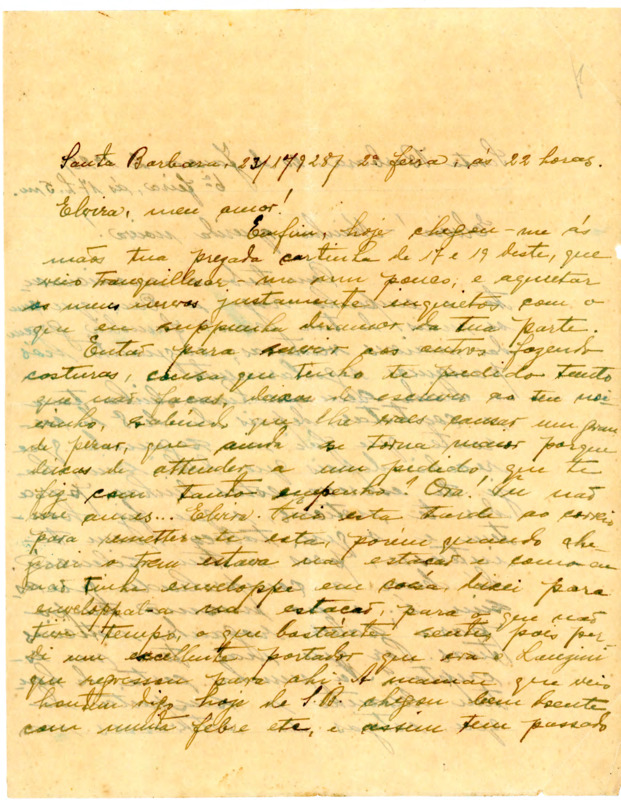 Santa Barbara, 23/1/928/ 2ª feira, ás 22 horas.
Elvira, meu amor!
Enfim, hoje chegou-me ás
mãos tua prezada cartinha de 17 e 19 deste, que
veio tranquillisar-me um pouco, e aquietar
os meus nervos justamente inquietos com o
que eu suppunha desamor da tua parte.
Então para servir aos outros fazendo
costuras, cousa que tenho te pedido tanto
que não faças, deixas de escrever ao teu noi-
vinho, sabendo que lhe vaes causar um gran-
de pezar, que ainda se torna maior porque
deixas de attender a um pedido que te
fiz com tanto empenho? Ora! Tu não
me amas... Elvira. Fui esta tarde ao correio
para remetter-te esta, porém quando che-
guei o trem estava na estação e como eu
não tinha enveloppe em casa, deixei para
enveloppal-a na estação, para o que não
tive tempo, o que bastante senti, pois per-
di um excellente portador que era o
que regressou para ahi. A mamãe que veio
hontem digo hoje de S.B. chegou bem doente
com muita febre etc, e assim tem passado